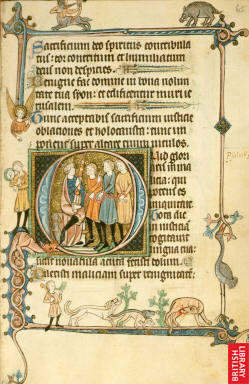 Sacrificium deo spiritus contribula
tus: cor contritum et humiliatum
deus non despicies.
Benigne fac domine in bona volun
tate tua syon: ut edificentur muri ie
rusalem.
Tunc acceptabis sacrificium iusticie
oblaciones et holocausta: tunc im
ponent super altare tuum vitulos.
Quid glori
aris in ma
licia: qui
potens es
iniquitate
Tota die
iniusticia
cogitavit
lingua tua:
sicut novacula acuta fecisti dolum.
Dilexisti maliciam super benignitate
BRITISH
LIBRARY